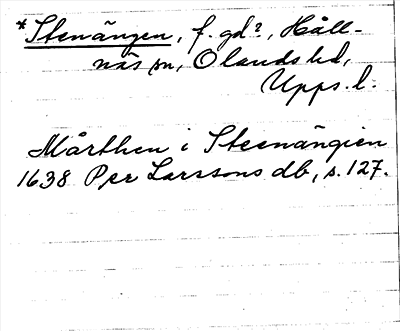 *Stenängen, f. gd?, Håll-
näs sn, Olands hd,
Upps. l.
Mårthen i Steenängien
1638 Per Larssons db, s. 127.